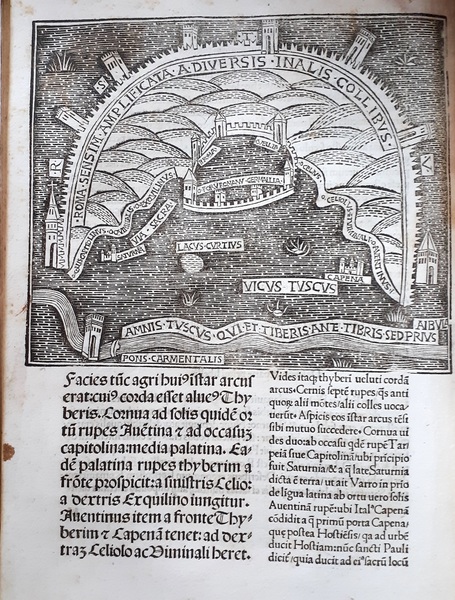 ROMA·SENSIM·AMPLIFICATA·A·DIVERSIS·INALIS·COLLIBVS·
LACVS·CVRTIVS
VICVS TVSCVS
CAPENA
VIA·SACRA
AMNIS·TVSCVS·QVI·ET·TIBERIS·ANTE·TIBRIS·SED·PRIVS
PONS·CARMENTALIS
Facies tūc agri huiꝰ īstar arcus
erat: cuiꝰ corda esset alueꝰ Thy
beris. Cornua ad solis quidē or
tū rupes Auētina & ad occasuꝫ
capitolina: media palatina. Ea-
dē palatina rupes thyberim a
frōte prospicit: a sinistris Celio:
a dextris Exquilino iungitur.
Auentinus item a fronte Thy-
berim & Capenā tenet: ad dex-
traꝫ Celiolo ac Viminali heret.
Vides itaqꝫ thyberī ueluti cordā
arcus. Cernis septē rupes: q̄s anti
quoꝝ alii mōtes/alii colles uoca-
uerūt. Aspicis eos īstar arcus tēs̄i
sibi mutuo succedere. Cornua ui
des duo: ab occasu qdē rupē Tar
peiā siue Capitolinā: ubi prīcipio
fuit Saturnia/& a q̄ late Saturnia
dicta ē terra/ut ait Varro in prio
de līgua latina ab ortu uero solis
Auentinā rupē: ubi Italꝰ Capenā
cōdidit a q̄ primū porta Capena/
que postea Hostiēsis/qa ad urbē
ducit Hostiam: nūc sancti Pauli
dicit̄/quia ducit ad eiꝰ sacrū locū